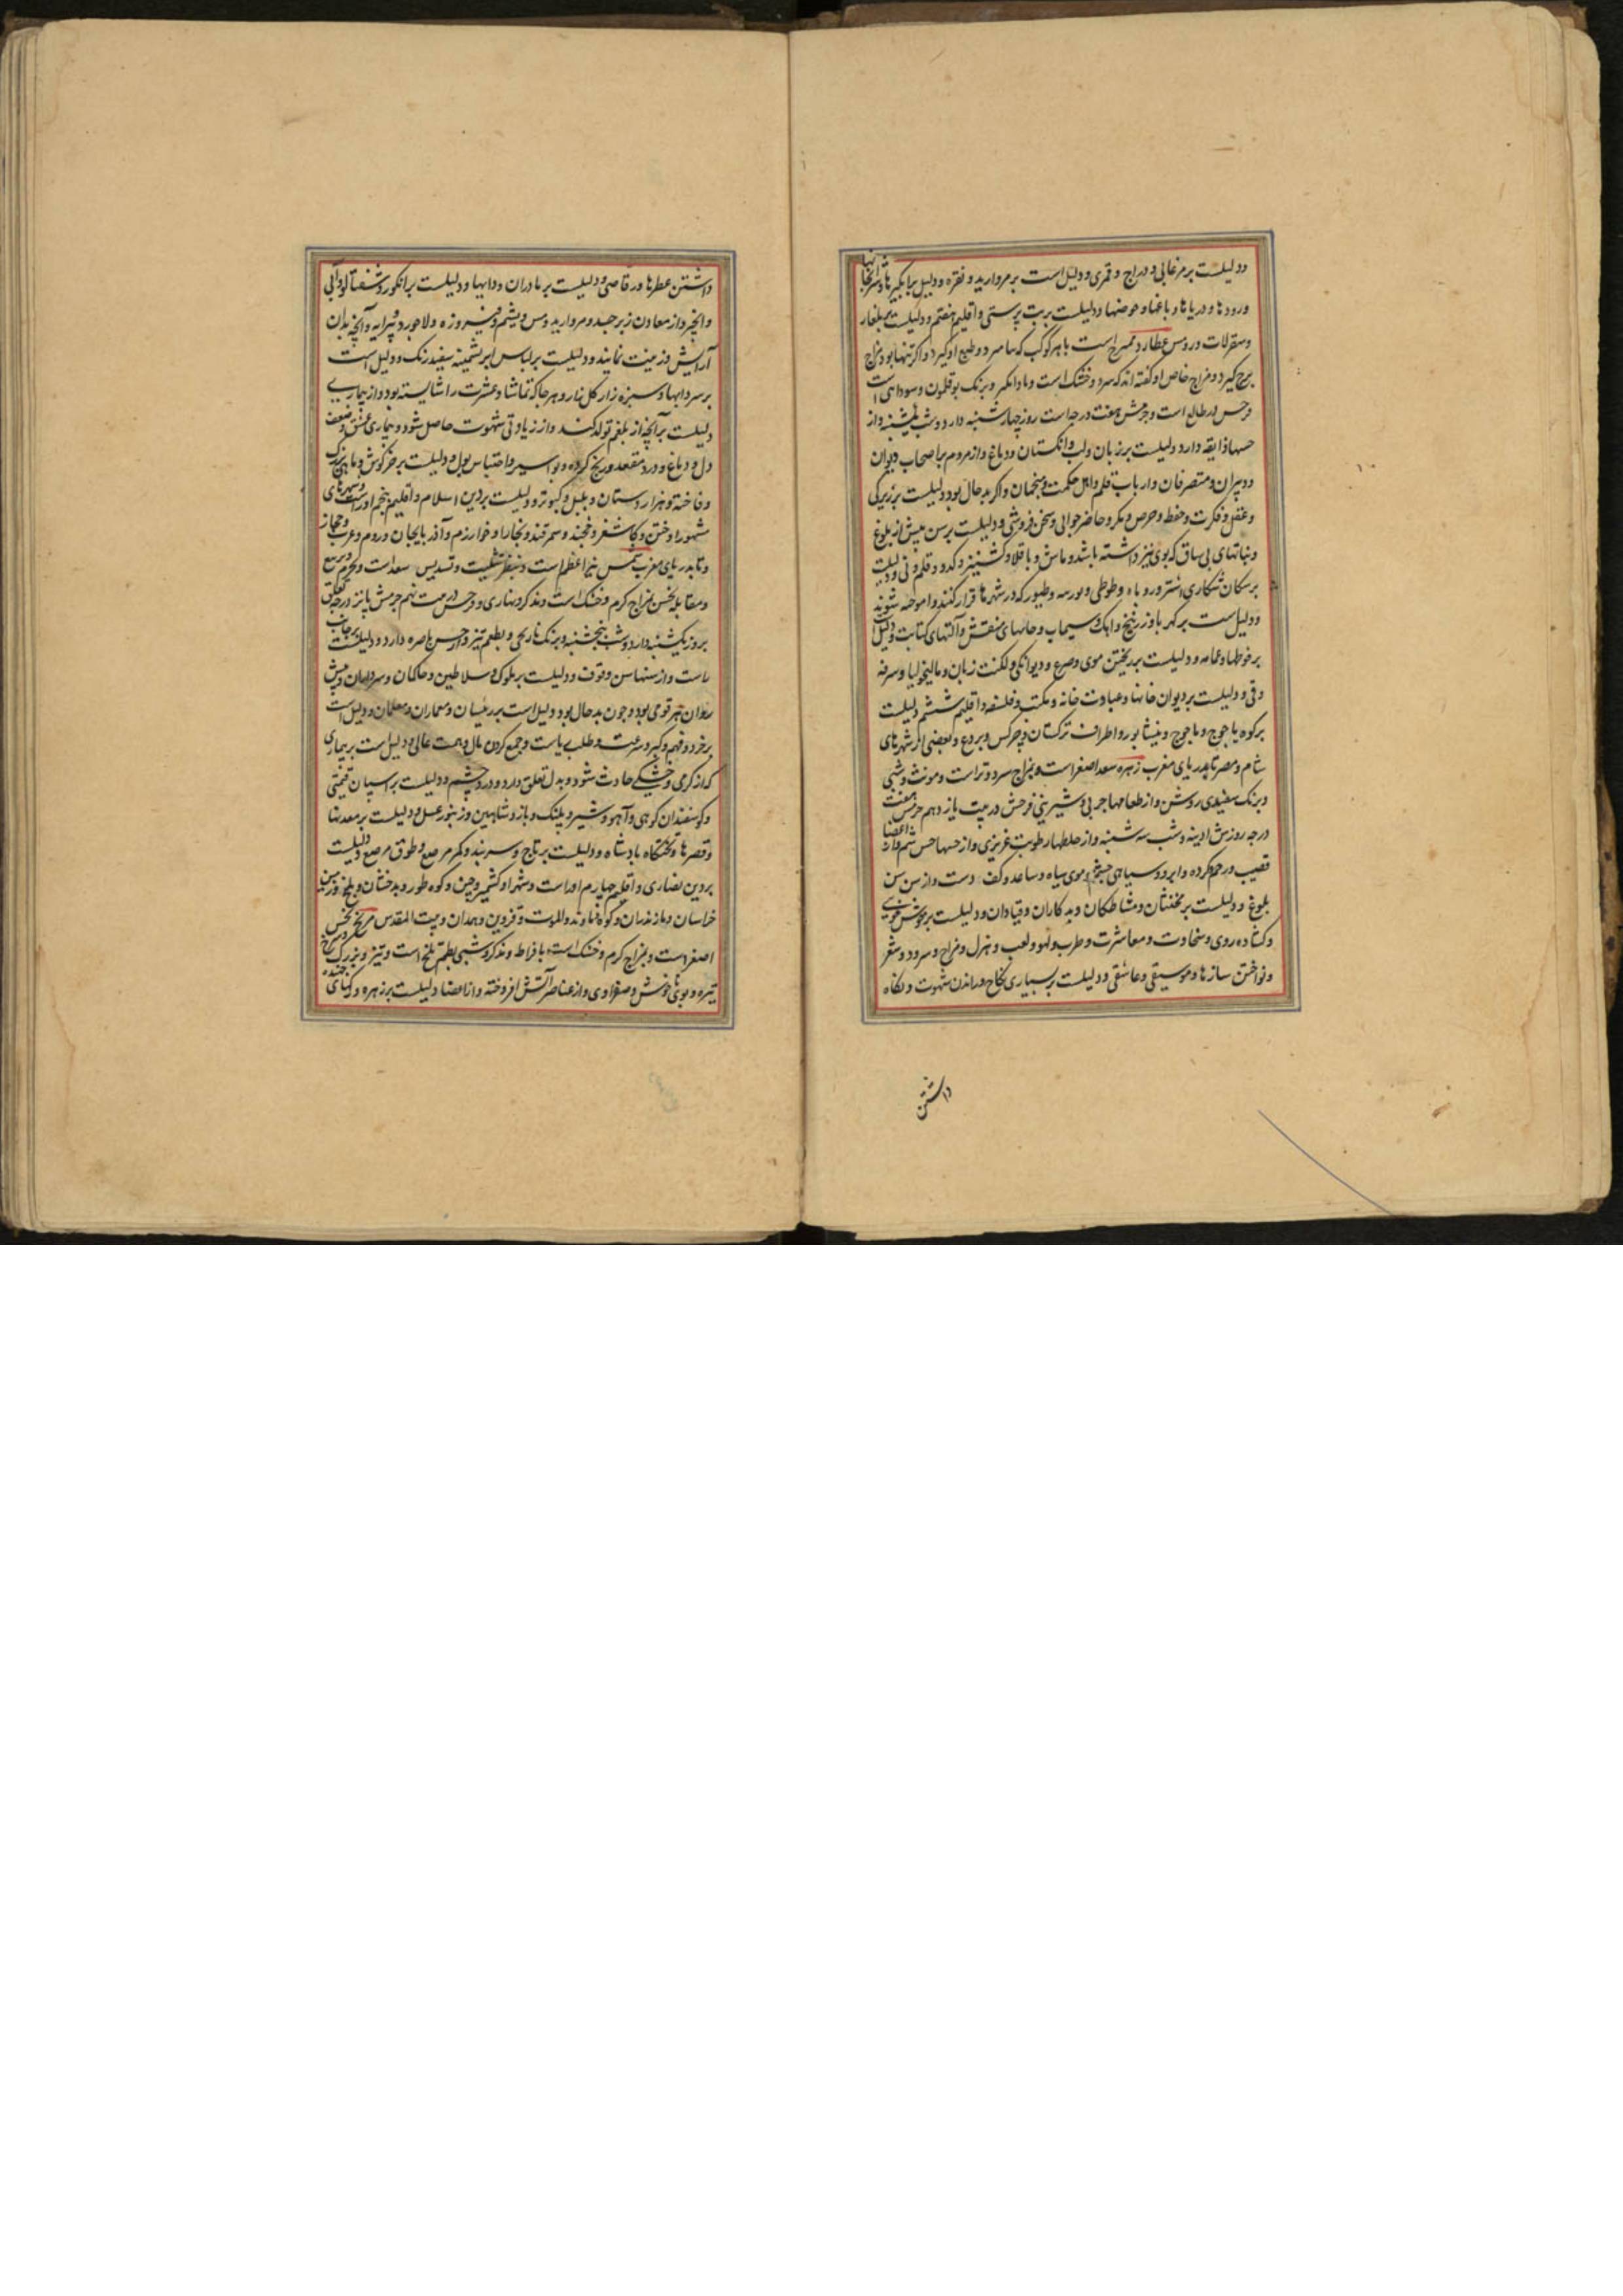 ودلیلست بر مرغابی ودراج وقمری ودلیل است بر مروارید ونقره ودلیل بر آبگیرها وشرابخانها
ورودها ودریاها وباغها وحوضها ودلیلست بر بت پرستی واقلیم هفتم ودلیلست بر بلغار
وسقرلات وروس عطارد ممتزج است با هر کوکب که باشد وطبع او گیرد واگر تنها بود مزاج
برج گیرد ومزاج خاص او گفته اند که سرد وخشک است وبرنک بوقلمون وسوداهی است
فرحش در طالع است وجرمش هفت درجه است روز چهارشنبه دارد وشب یکشنبه واز
حسها ذایقه دارد دلیلست بر زبان ولب وانکستان ودماغ واز مردم بر اصحاب دیوان
ودبیران ومتصرفان وارباب قلم واهل حکمت ومنجمان واگر بد حال بود دلیلست بر زیرکی
وعقل وفکرت وحفظ وحرص ومکر وحاضر جوابی وسخن فروشی ودلیلست بر سن پیش از بلوغ
ونباتهای بی ساق که بوی تیز داشته باشد وماش وباقلا وکشنیز وکدو وقلم ونی ودلیلست
بر سکان شکاری استر وروباه وطوطی وطیور که در شهرها قرار کنند واموخته شوند
ودلیل ست بر کهربا وزرنیخ واهک وسیماب وجامهای منقش وآلتهای کتابت ودلیل
بر فوطها وعمامه ودلیلست بر ریختن موی وصرع ودیوانکی ولکنت زبان ومالیخولیا وسرفه
وقی ودلیلست بر دیوان خانها وعبادت خانه ومکتب وفلسفه واقلیم ششم دلیلست
بر کوه یاجوج وماجوج ونیشابور واطراف ترکستان وچرکس وبردع وبعضی از شهرهای
شام ومصر تا بدریای مغرب زهره سعد اصغر است ومزاج سرد وتر است ومونث وشبی
وبرنک سفیدی روشن واز طعامها چربی وشیرینی فرحش در بیت یازدهم جرمش هفت
درجه روزش ادینه وشب سه شنبه واز خلطها رطوبت غریزی واز حسها حس شم دارد واعضا
قضیب ورحم کرده وابرو وسیاهی چشم وموی سیاه وساعد وکف دست واز سن سن
بلوغ ودلیلست بر مخنثان ومشاطکان وبدکاران وقیادان ودلیلست بر خوش خویی
وکشاده روی وسخاوت ومعاشرت وطرب ولهو ولعب وهزل ومزاح وسرود وشعر
ونواختن سازها وموسیقی وعاشقی ودلیلست بر بسیاری نکاح وراندن شهوت ونکاه
داشتن
داشتن عطرها ورقاصی ودلیلست بر مادران ودایها ودلیلست بر انگور وشفتالو وآبی
وانجیر واز معادن زبرجد ومروارید ومس ویشم وفیروزه ولاجورد وپیرایه وآنچه بدان
آرایش وزینت نمایند ودلیلست بر لباس ابریشمینه سفید رنک ودلیل است
بر سردابها وسبزه زار کل نار وهر جا که تماشا وعشرت را شایسته بود واز بیماری
دلیلست بر آنچه از بلغم تولد کند واز زیادتی شهوت حاصل شود وبیماری عشق وضعف
دل ودماغ ودرد مقعد وریح کرده وبواسیر واحتباس بول ودلیلست بر خرکوش وماهی بزرک
وفاخته وهزار دستان وبلبل وکبوتر ودلیلست بر دین اسلام واقلیم پنجم اوراست وشهرهای
مشهور او ختن وکاشغر وخجند وسمرقند وبخارا وخوارزم وآذربایجان وروم وعرب وحجاز
وتا بدریای مغرب شمس نیر اعظم است وبنظر تثلیث وتسدیس سعد است وتربیع
ومقابله نحس مزاج کرم وخشک است ومذکر ونهاری وفرحش در بیت نهم جرمش پانزده درجه تعلق
بروز یکشنبه دارد وشب پنجشنبه وبرنک نارنجی وبطعم تیز واز حس باصره دارد ودلیلست بر جانب
راست واز سنها سن وقوف ودلیلست بر ملوک وسلاطین وحاکمان وسرداران وپیش
روان هر قومی بود وچون بد حال بود دلیل است بر رئیسان ومعماران ومعلمان ودلیل است
بر خرد وفهم وکبر ورعبت وطلب ریاست وجمع کردن مال وهمت عالی ودلیل است بر بیماری
که از کرمی وخشکی حادث شود وبدل تعلق دارد ودرد چشم ودلیلست بر اسپان قیمتی
وکوسفندان کوهی وآهو وشیر وپلنک وباز وشاهین وزنبور عسل ودلیلست بر معدنها
وقصرها وتختگاه بادشاه ودلیلست بر تاج وسربند وکمر مرصع وطوق مرصع ودلیلست
بر دین نصاری واقلیم چهارم اوراست وشهر او کشمیر وچین وکوه طور وبدخشان وبلخ
خراسان ومازندران وکوه نهاوند والموت وقزوین وهمدان وبیت المقدس مریخ نحس
اصغر است ومزاج کرم وخشک است بافراط ومذکر وشبی بطعم تلخ است وتیز وبرنک سرخ
تیره وبوی ناخوش وصفراوی واز عناصر آتش افروخته واز اعضا دلیلست بر زهره